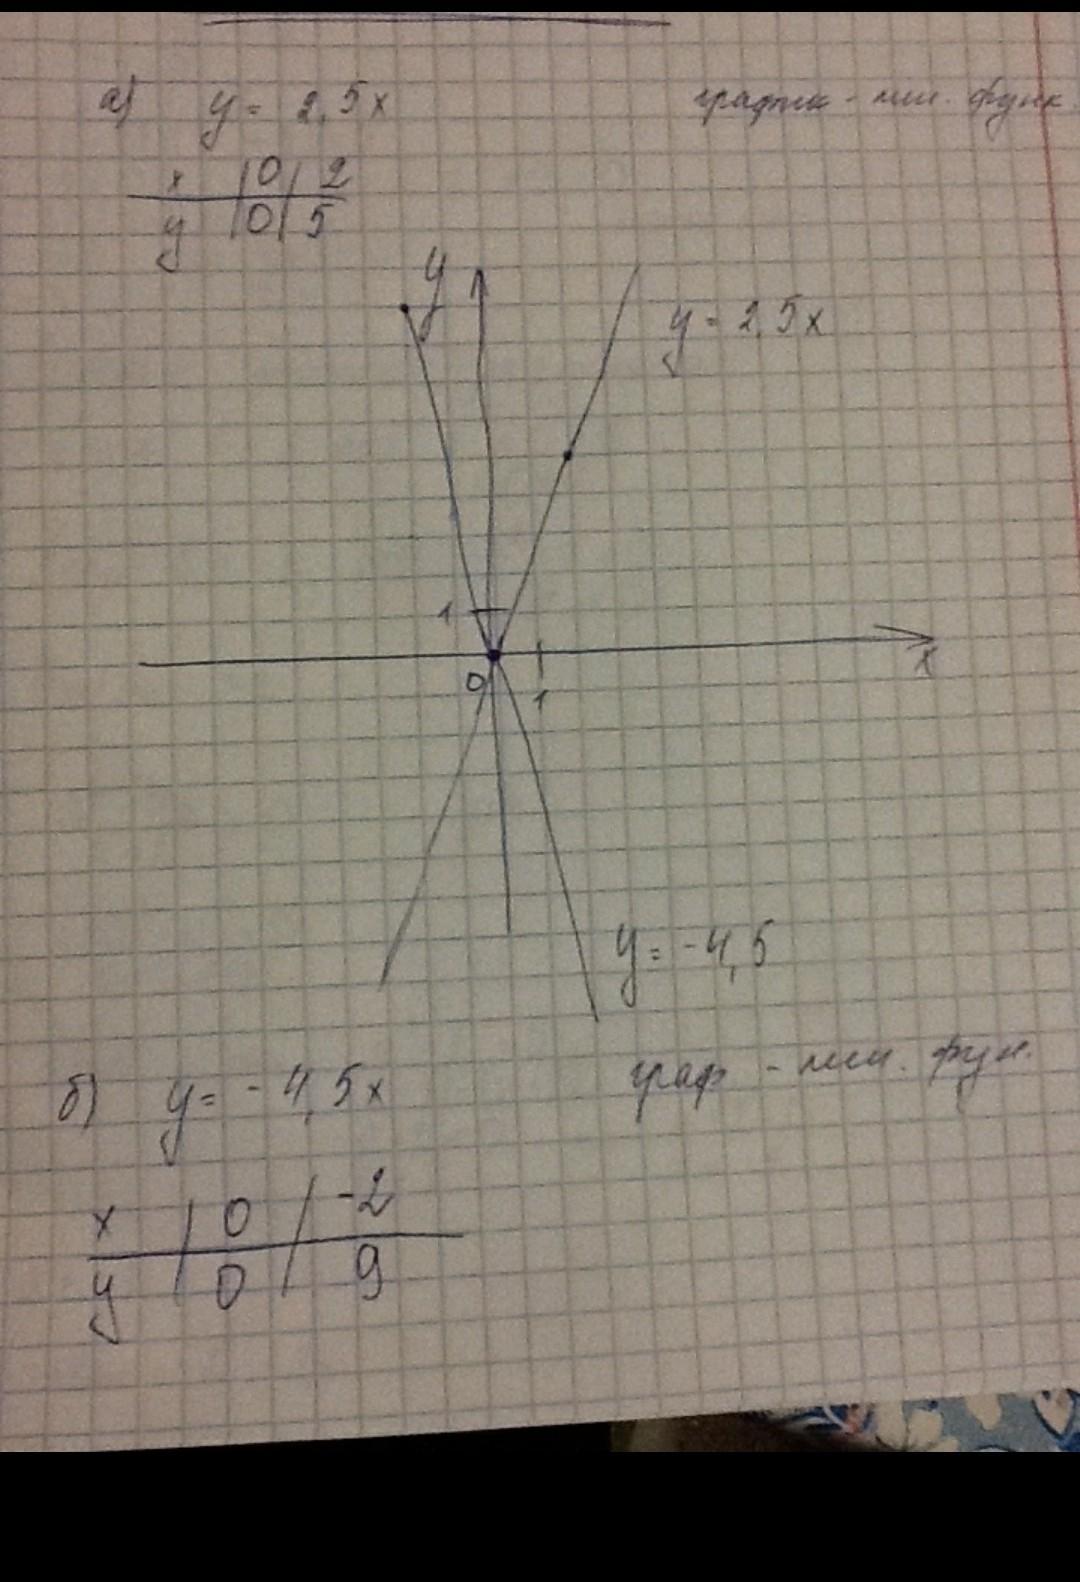 а) y = 2,5x график - лин. функ.
x | 0 | 2
y | 0 | 5
y
y = 2,5x
1
x
0
1
y = -4,5
б) y = -4,5x граф - лин. фун.
x | 0 | -2
y | 0 | 9